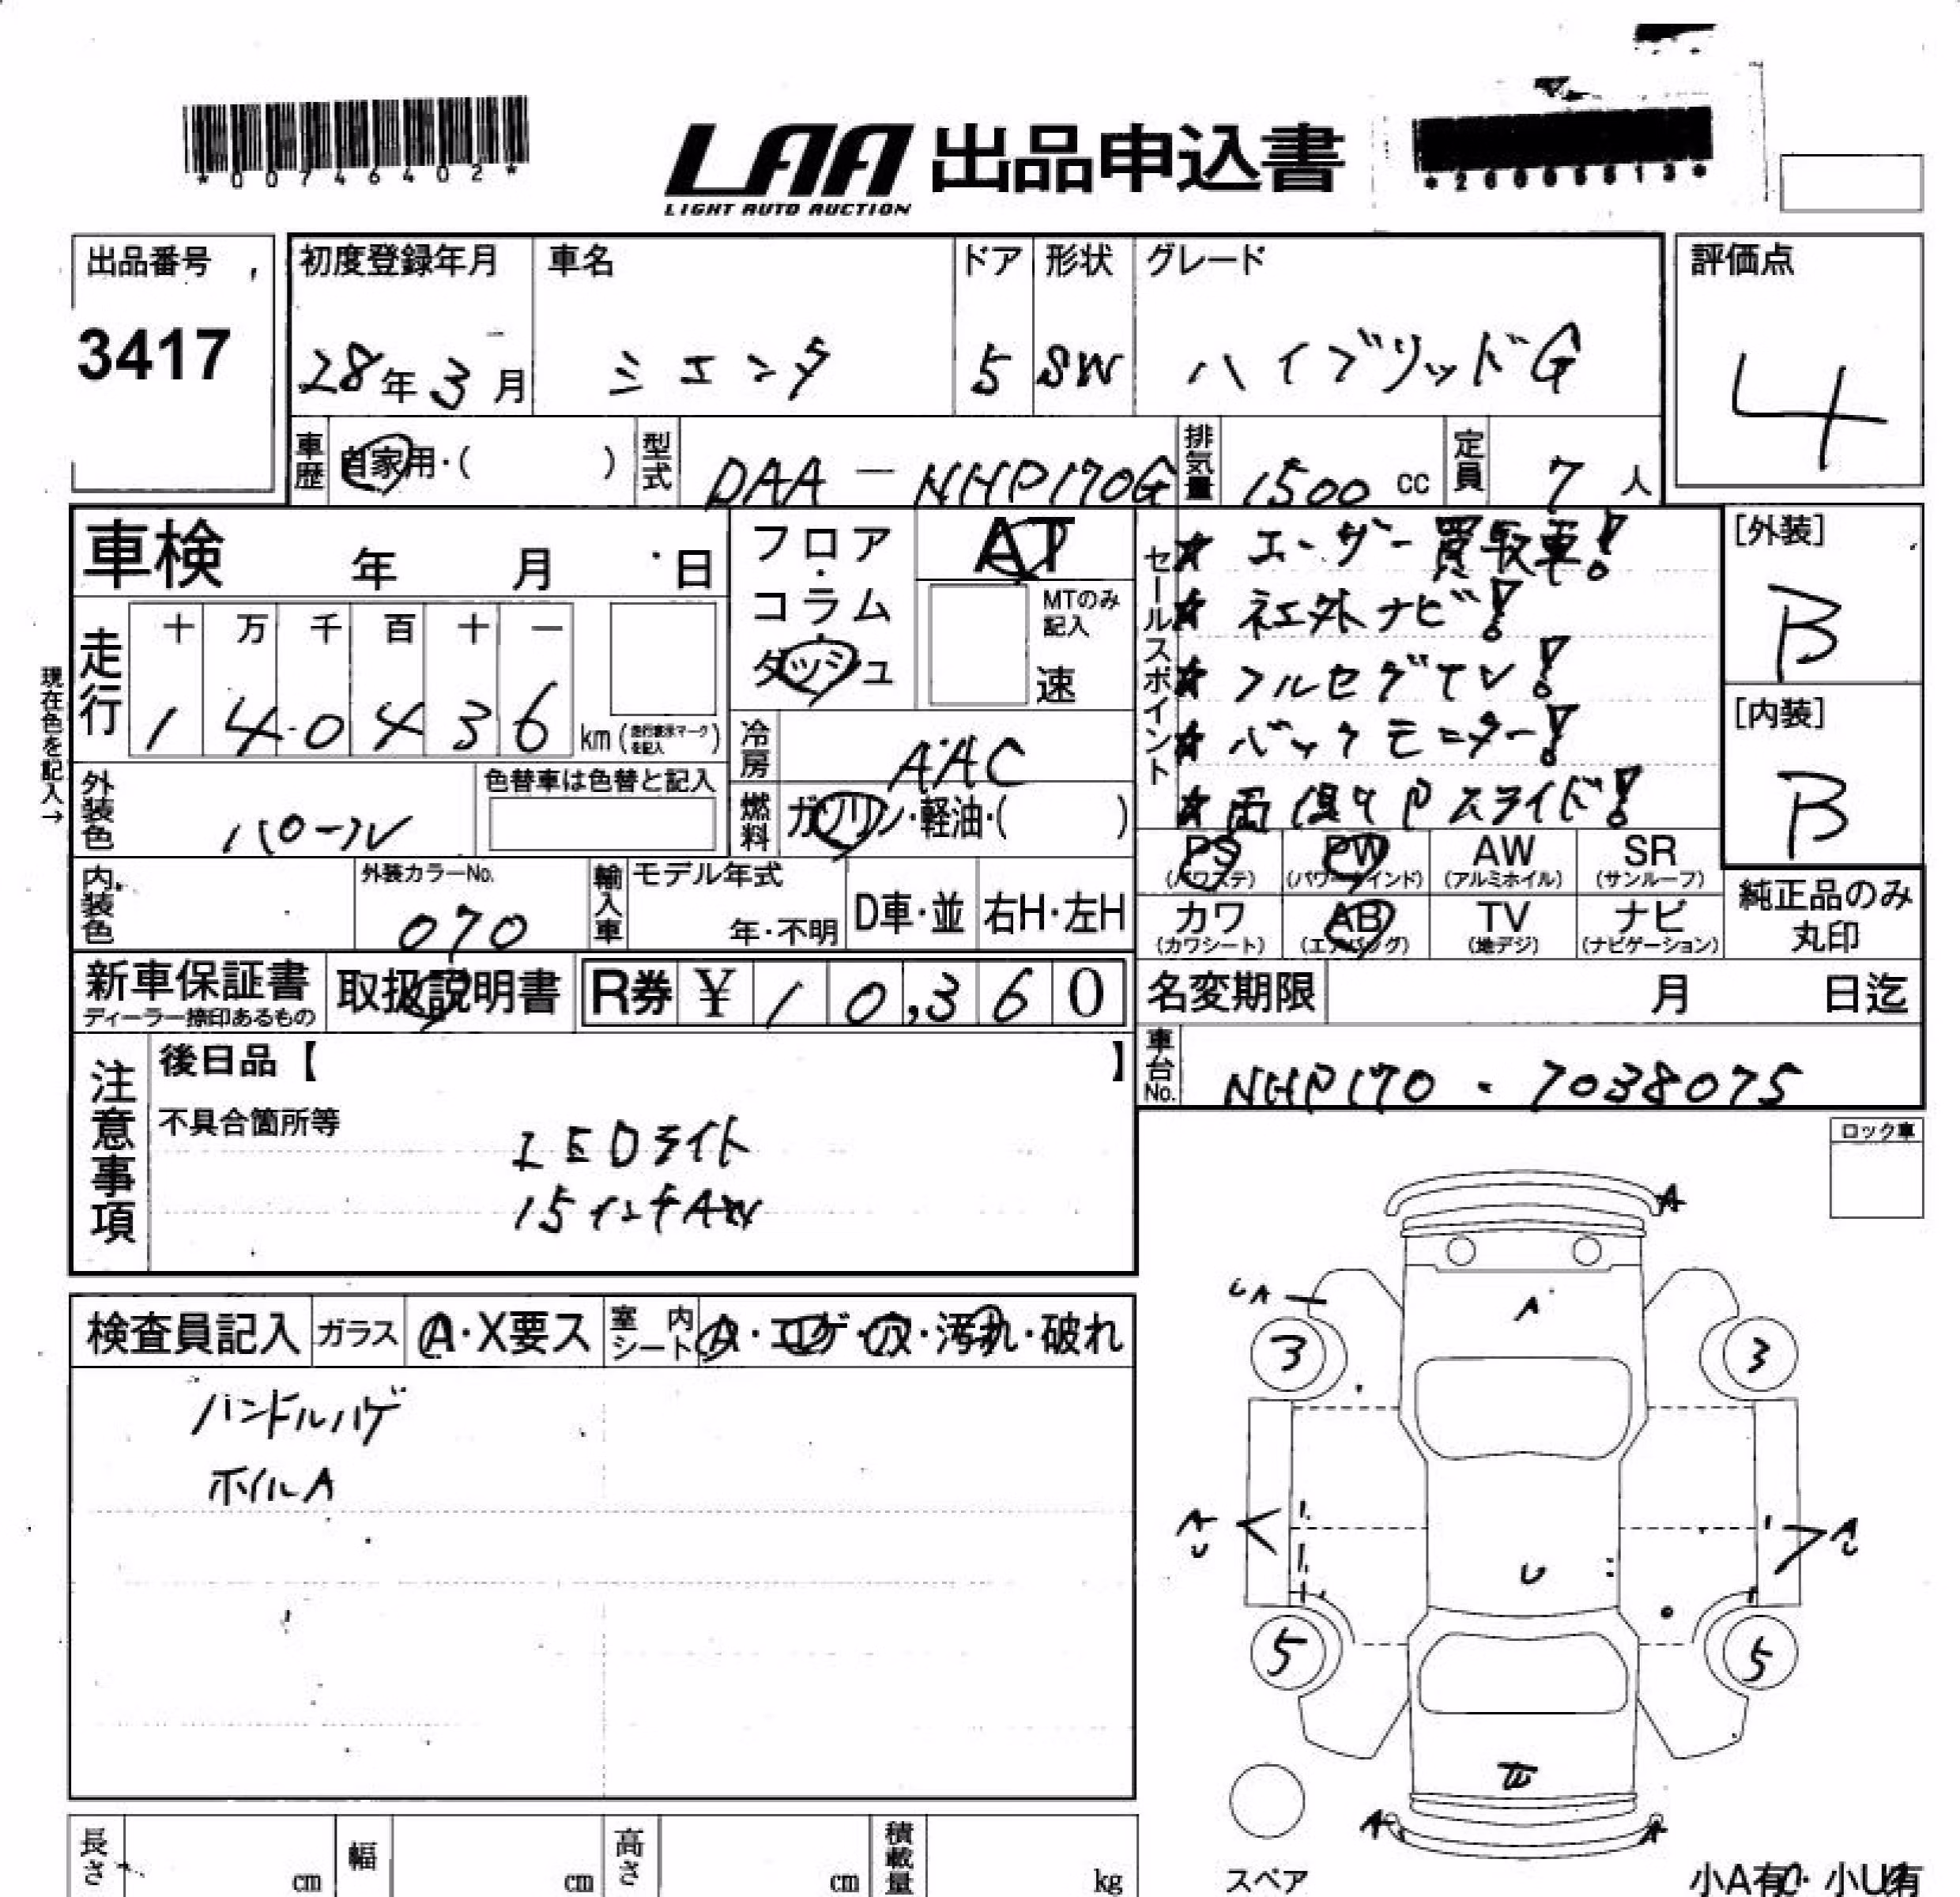 *00746402*
LAA 出品申込書
LIGHT AUTO AUCTION
出品番号
3417
初度登録年月
28年3月
車名
シエンタ
ドア
5
形状
SW
グレード
ハイブリッドG
評価点
4
車歴
自家用・( )
型式
DAA-NHP170G
排気量
1500 cc
定員
7人
車検 年 月 日
フロア・コラム・ダッシュ
AT
MTのみ記入
速
セールスポイント
★ユーザー買取車!
★社外ナビ!
★フルセグTV!
★バックモニター!
★両側Pスライド!
[外装]
B
[内装]
B
走行
十 万 千 百 十 一
1 4 0 4 3 6 km (走行表示マークを記入)
現在色を記入→
外装色
パール
色替車は色替と記入
冷房
AAC
燃料
ガソリン・軽油・( )
内装色
外装カラーNo.
070
輸入車
モデル年式
年・不明
D車・並
右H・左H
PS (パワステ)
PW (パワーウインド)
AW (アルミホイル)
SR (サンルーフ)
カワ (カワシート)
AB (エアバッグ)
TV (地デジ)
ナビ (ナビゲーション)
純正品のみ丸印
新車保証書
ディーラー捺印あるもの
取扱説明書
R券 ¥10,360
名変期限 月 日迄
車台No.
NHP170-7038075
注意事項
後日品【 】
不具合箇所等
LEDライト
15インチAW
ロック車
検査員記入
ガラス
A・X要ス
室内シート
A・コゲ・穴・汚れ・破れ
ハンドルハゲ
ホイルA
A
UA
A
3
3
A
U
U
A
U
5
5
A
A
スペア
小A有・小U有
長さ cm
幅 cm
高さ cm
積載量 kg